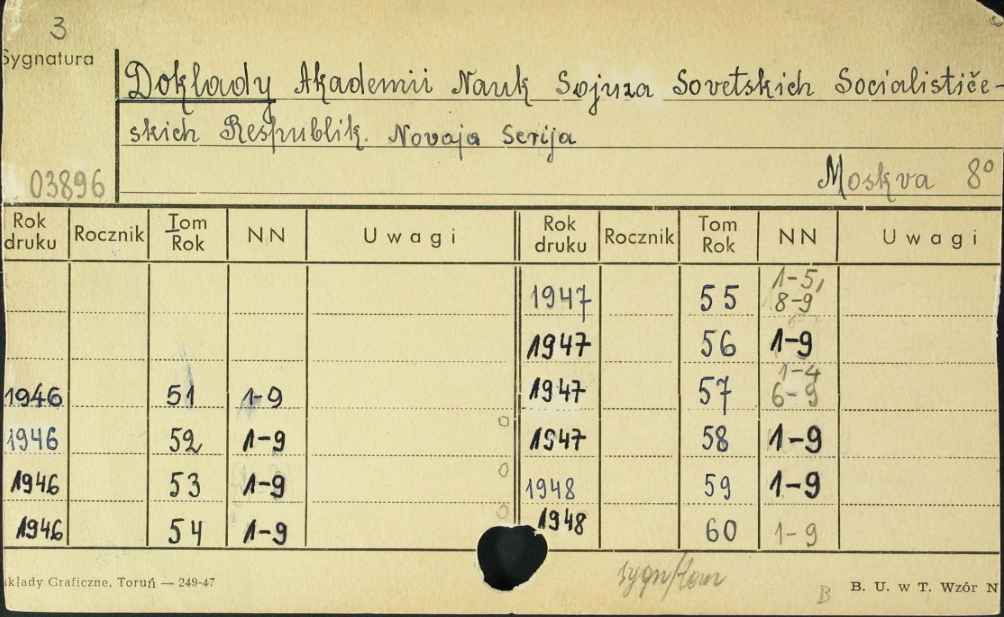 3
Sygnatura
Doklady Akademii Nauk Sojuza Sovetskich Socialističe-
skich Respublik. Novaja Serija
03896
Moskva 8°
Rok druku Rocznik Tom Rok NN Uwagi Rok druku Rocznik Tom Rok NN Uwagi
1947 55 1-5, 8-9
1947 56 1-9
1946 51 1-9 1947 57 1-4 6-9
1946 52 1-9 1947 58 1-9
1946 53 1-9 1948 59 1-9
1946 54 1-9 1948 60 1-9
sygn/tom
kłady Graficzne, Toruń — 249-47
B
B. U. w T. Wzór N